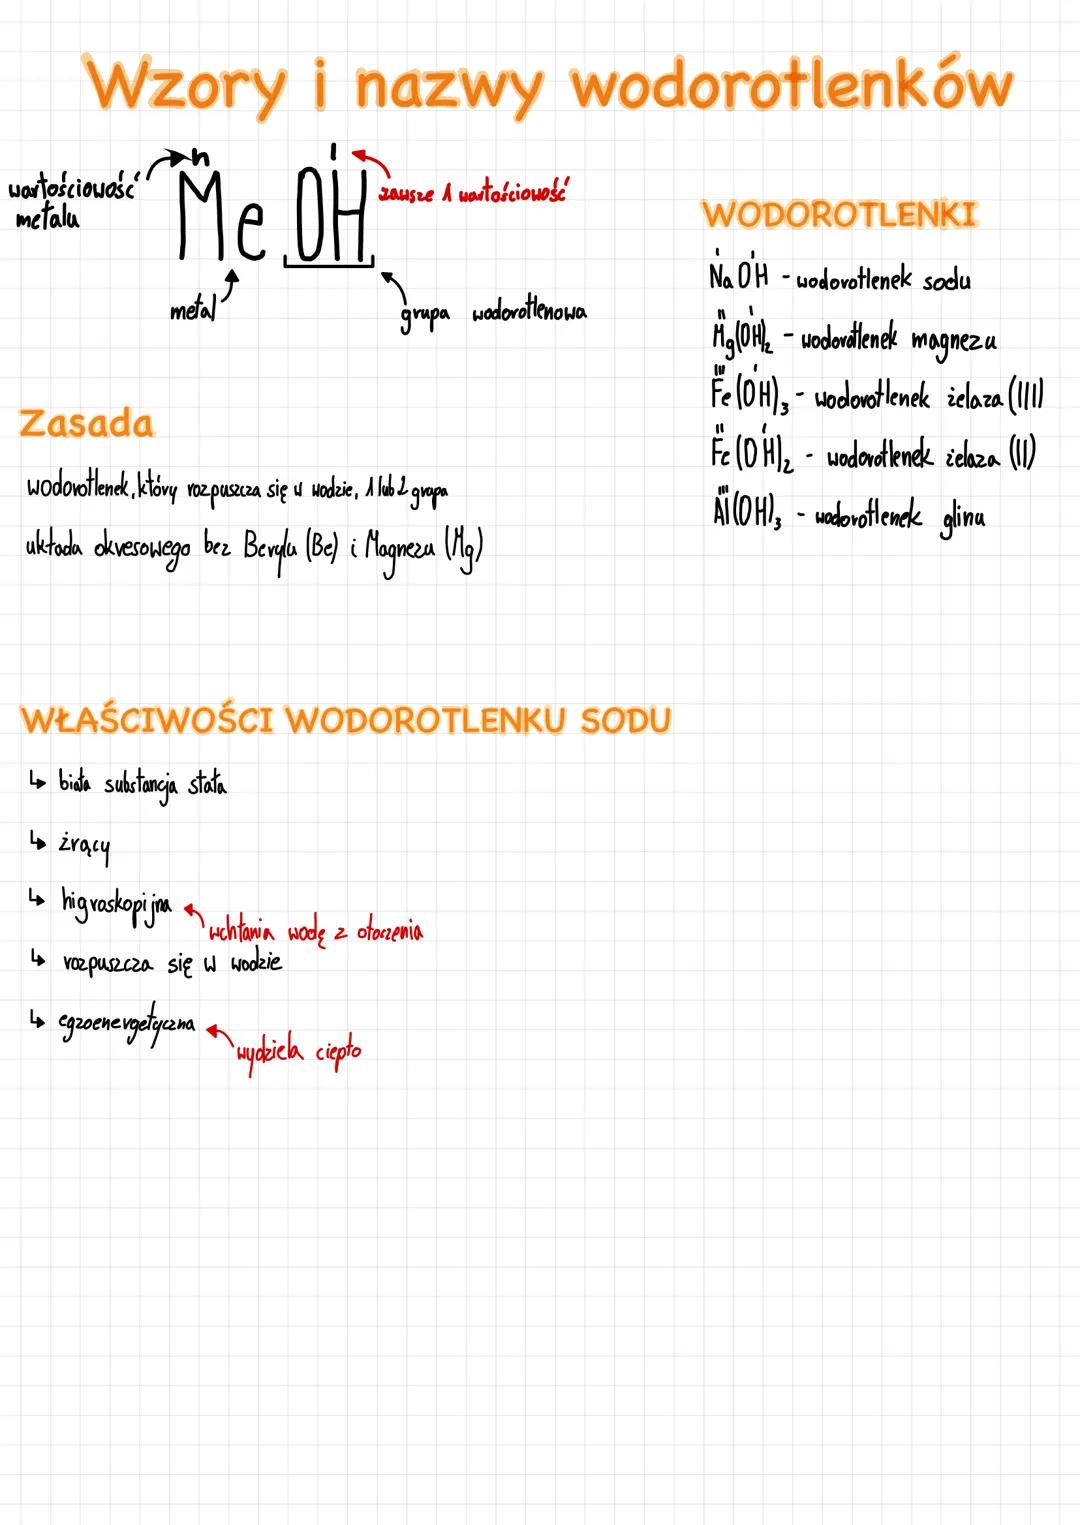 Wzory i nazwy wodorotlenków
n
I
wartościowość
metalu
Me OH
zawsze 1 wartościowość
metal
grupa wodorotlenowa
WODOROTLENKI
I I
NaOH - wodorotlenek sodu
II I
Mg(OH)₂ - wodorotlenek magnezu
III I
Fe(OH)₃ - wodorotlenek żelaza (III)
II I
Fe(OH)₂ - wodorotlenek żelaza (II)
III
Al(OH)₃ - wodorotlenek glinu
Zasada
wodorotlenek, który rozpuszcza się w wodzie, 1 lub 2 grupa
układa okresowego bez Berylu (Be) i Magnezu (Mg)
WŁAŚCIWOŚCI WODOROTLENKU SODU
↳ biała substancja stała
↳ żrący
↳ higroskopijna
wchłania wodę z otoczenia
↳ rozpuszcza się w wodzie
↳ egzoenergetyczna
wydziela ciepło